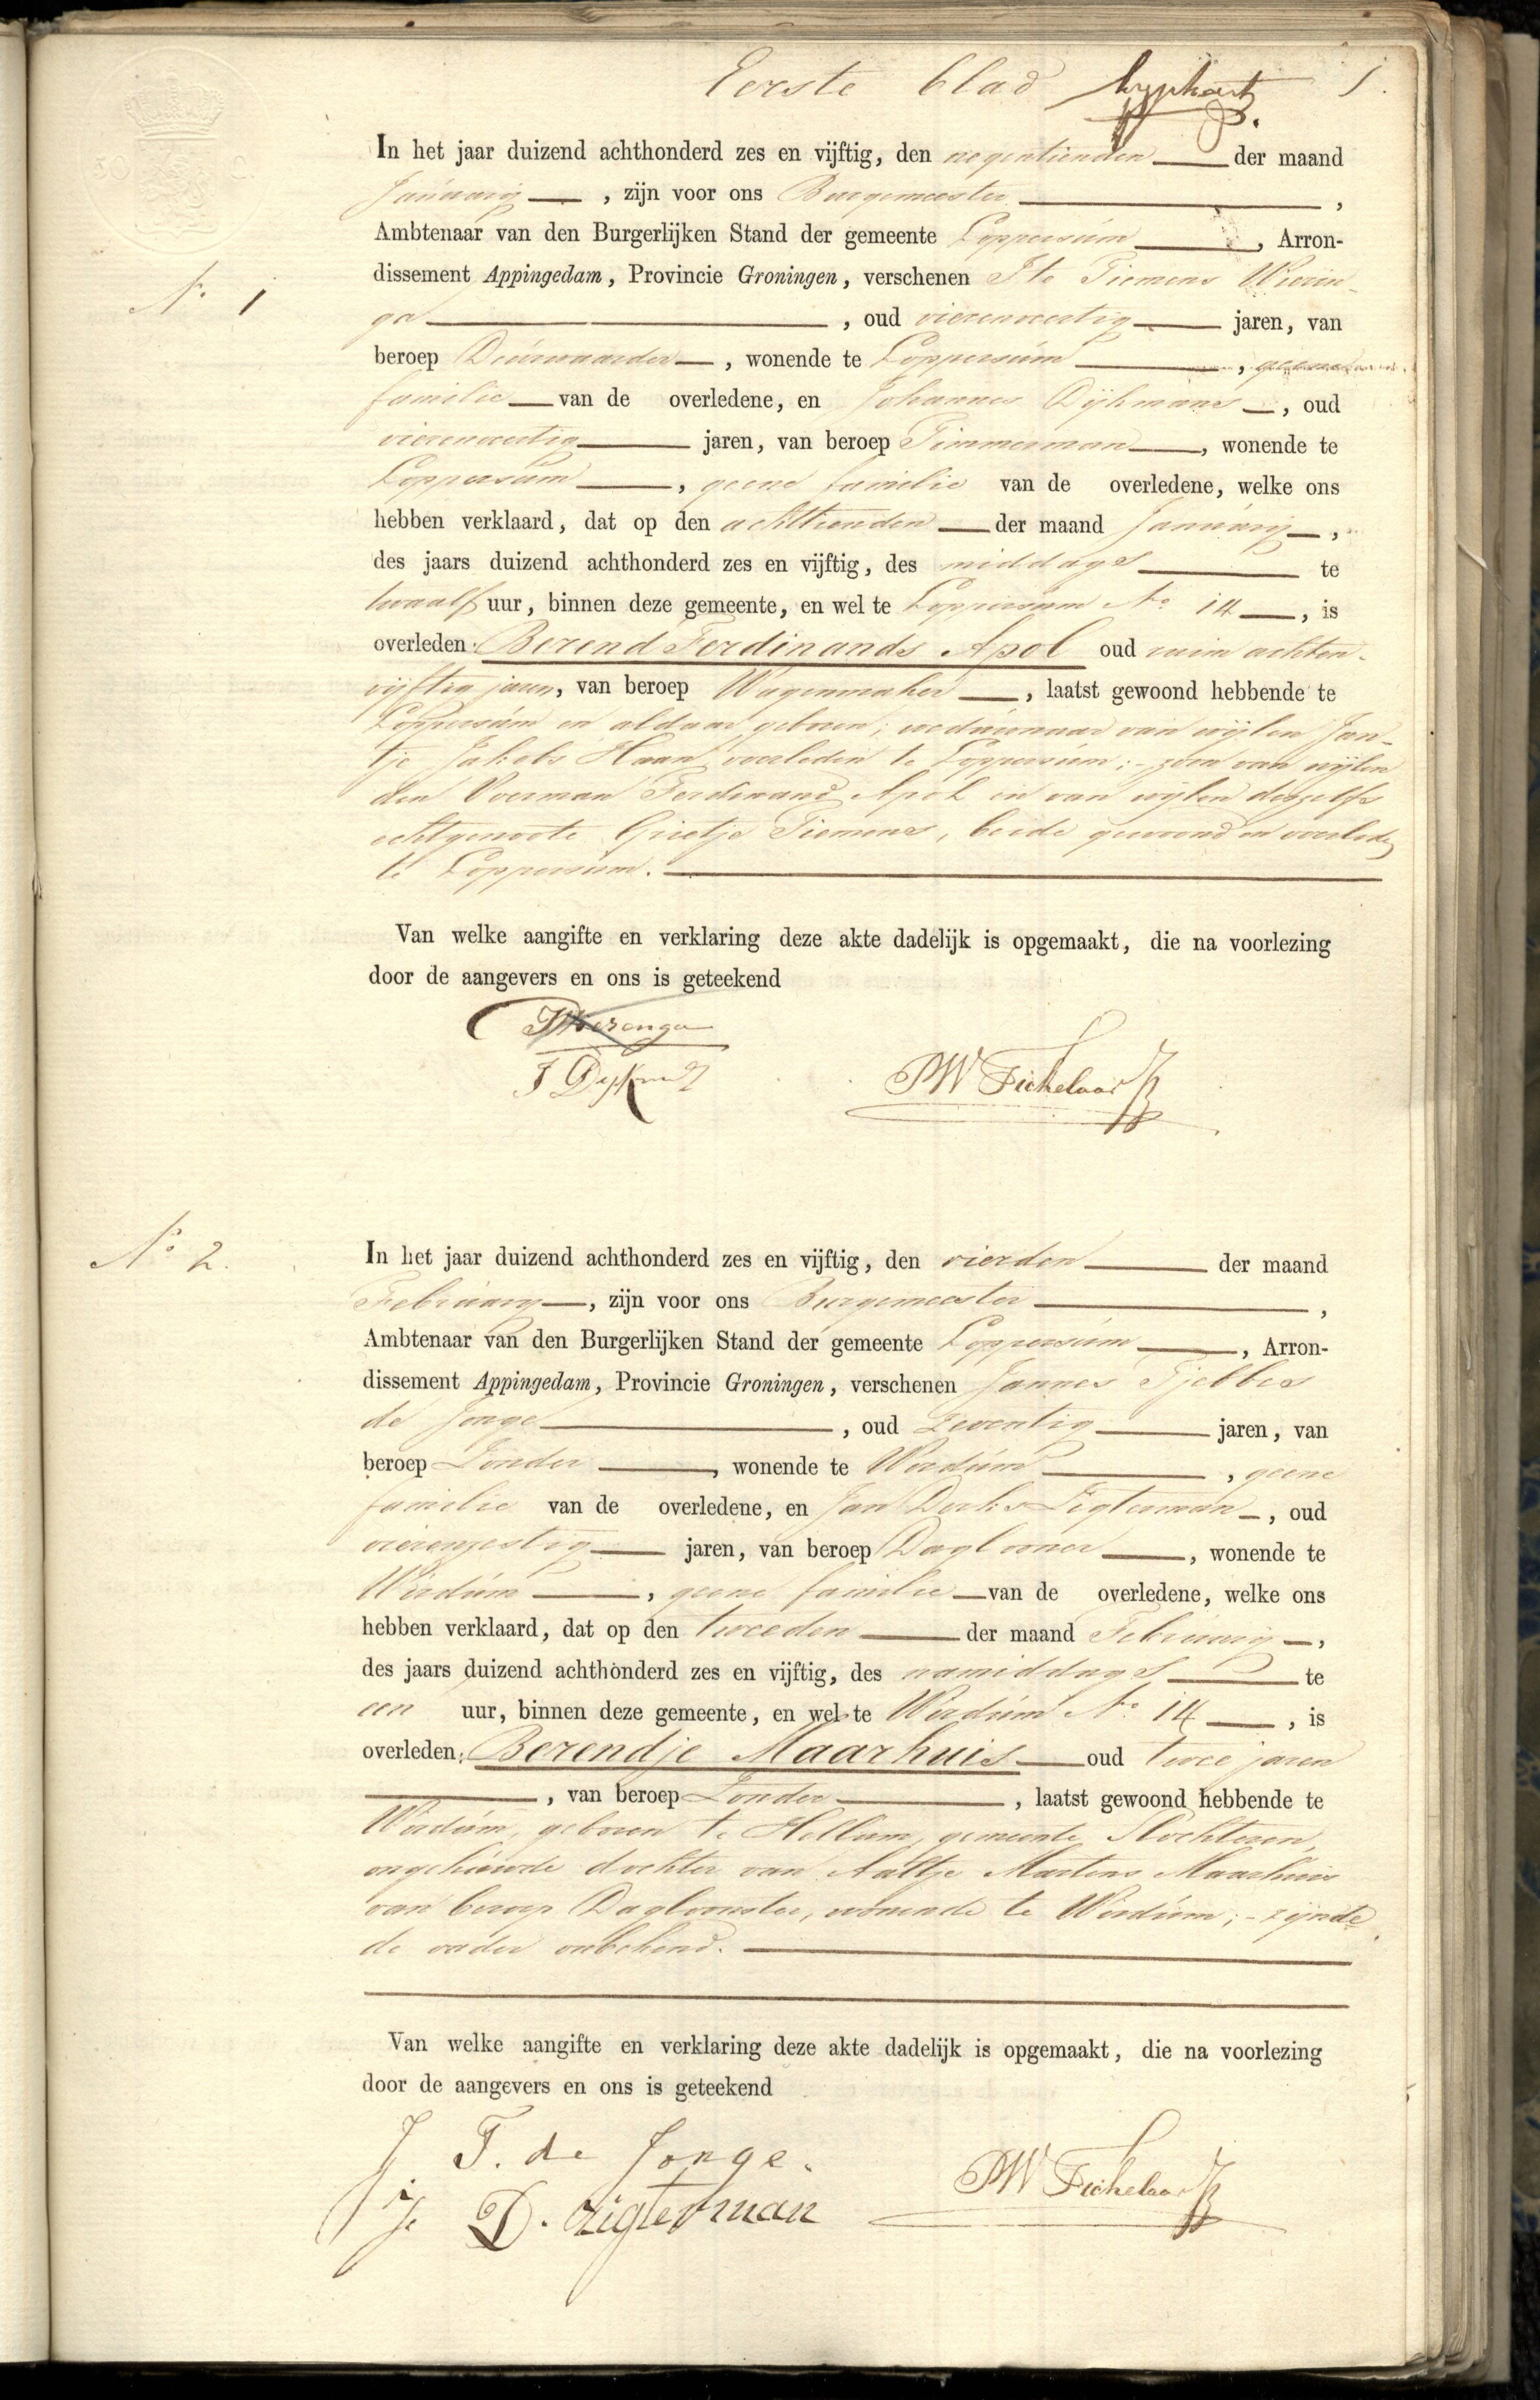 Eerste blad 1.
In het jaar duizend achthonderd zes en vijftig, den negentienden der maand
Januarij, zijn voor ons Burgemeester,
Ambtenaar van den Burgerlijken Stand der gemeente Loppersum, Arron-
dissement Appingedam, Provincie Groningen, verschenen Ite Tiemens Wierin-
No 1
ga, oud vierenveertig jaren, van
beroep Deurwaarder, wonende te Loppersum, geene
familie van de overledene, en Johannes Dijkmans, oud
vierenveertig jaren, van beroep Timmerman, wonende te
Loppersum, geene familie van de overledene, welke ons
hebben verklaard, dat op den achttienden der maand Januarij,
des jaars duizend achthonderd zes en vijftig, des middags te
twaalf uur, binnen deze gemeente, en wel te Loppersum No 14, is
overleden: Berend Ferdinands Apol oud ruim achten-
vijftig jaren, van beroep Wagenmaker, laatst gewoond hebbende te
Loppersum en aldaar geboren; weduwenaar van wijlen Jan-
tje Jakobs Haan, overleden te Loppersum; - zoon van wijlen
den Voerman Ferdinand Apol en van wijlen deszelfs
echtgenoote Grietje Tiemens, beide gewoond en overleden
te Loppersum.
Van welke aangifte en verklaring deze akte dadelijk is opgemaakt, die na voorlezing
door de aangevers en ons is geteekend
J Dijkmans
PW Fickelaar
No 2.
In het jaar duizend achthonderd zes en vijftig, den vierden der maand
Februarij, zijn voor ons Burgemeester,
Ambtenaar van den Burgerlijken Stand der gemeente Loppersum, Arron-
dissement Appingedam, Provincie Groningen, verschenen Jannes Tjebbes
de Jonge, oud zeventig jaren, van
beroep Zonder, wonende te Wirdum, geene
familie van de overledene, en Jan Derks Zigterman, oud
vierenzestig jaren, van beroep Daglooner, wonende te
Wirdum, geene familie van de overledene, welke ons
hebben verklaard, dat op den tweeden der maand Februarij,
des jaars duizend achthonderd zes en vijftig, des namiddags te
een uur, binnen deze gemeente, en wel te Wirdum No 14, is
overleden: Berendje Maarhuis oud twee jaren
, van beroep Zonder, laatst gewoond hebbende te
Wirdum, geboren te Hellum, gemeente Slochteren,
ongehuwde dochter van Aaltje Martens Maarhuis
van beroep Dagloonster, wonende te Wirdum; - zijnde
de vader onbekend.
Van welke aangifte en verklaring deze akte dadelijk is opgemaakt, die na voorlezing
door de aangevers en ons is geteekend
J T. de Jonge.
J. D. Zigterman
PW Fickelaar